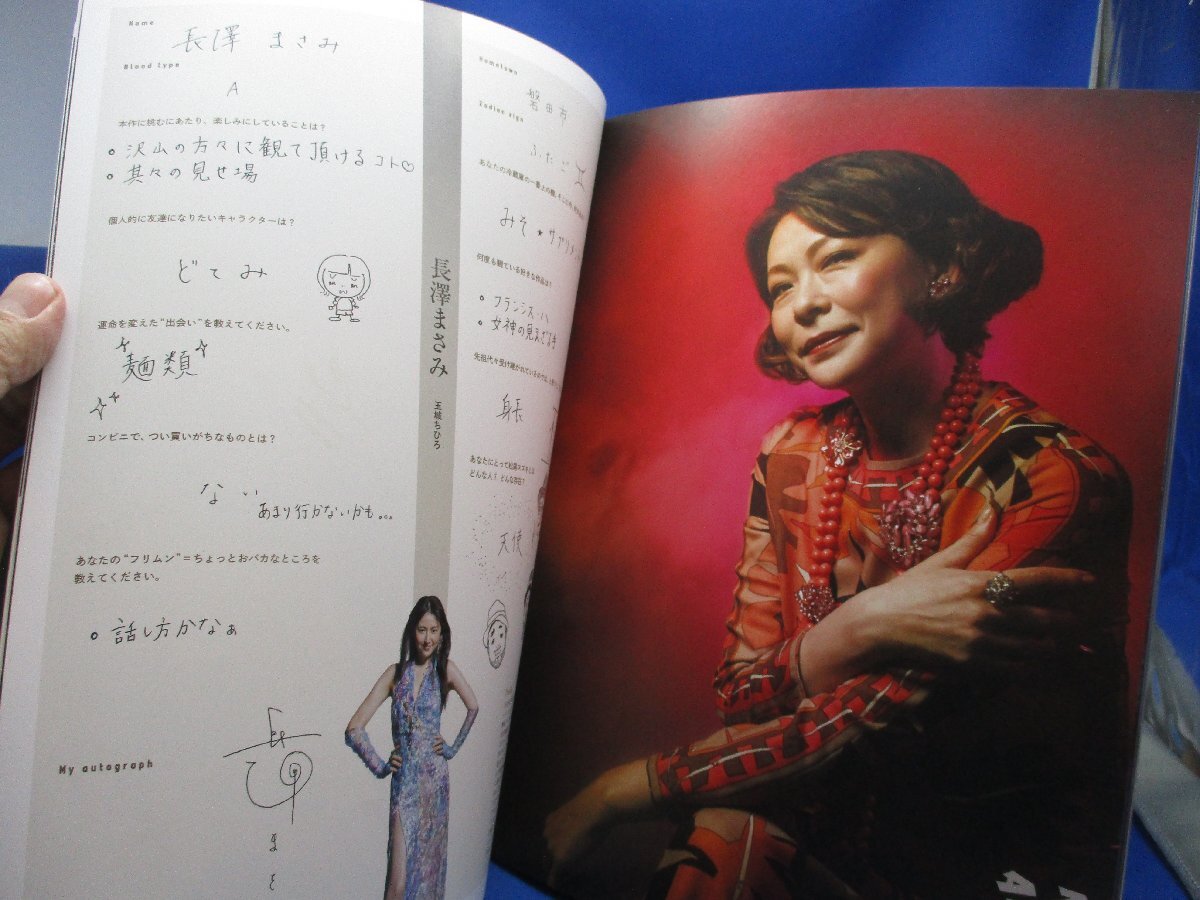 Name
長澤 まさみ
Blood type
A
本作に挑むにあたり、楽しみにしていることは？
沢山の方々に観て頂けるコト♡
其々の見せ場
個人的に友達になりたいキャラクターは？
どてみ
運命を変えた“出会い”を教えてください。
麺類
コンビニで、つい買いがちなものとは？
ない
あまり行かないかも…
あなたの“フリムン”＝ちょっとおバカなところを
教えてください。
話し方かなぁ
My autograph
長澤まさみ
玉城ちひろ
Hometown
磐田市
Zodiac sign
ふたご
みそ ★ サプリメン
何度も観ている好きな作品は？
フランシス・ハ
女神の見えざる手
身長
どんな人？ どんな存在？
天使